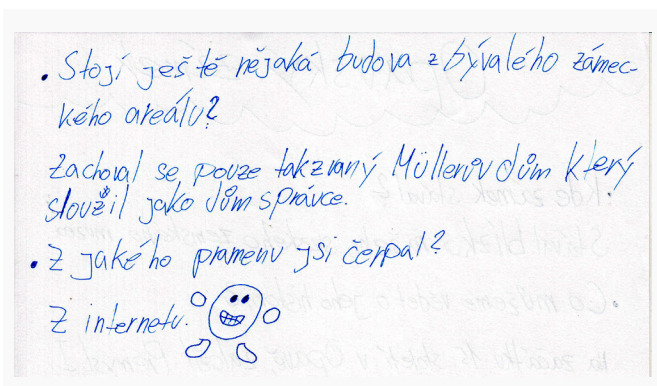 • Stojí ještě nějaká budova z bývalého zámec-
kého areálu?
Zachoval se pouze takzvaný Müllerův dům který
sloužil jako dům správce.
• Z jakého pramenu jsi čerpal?
Z internetu.